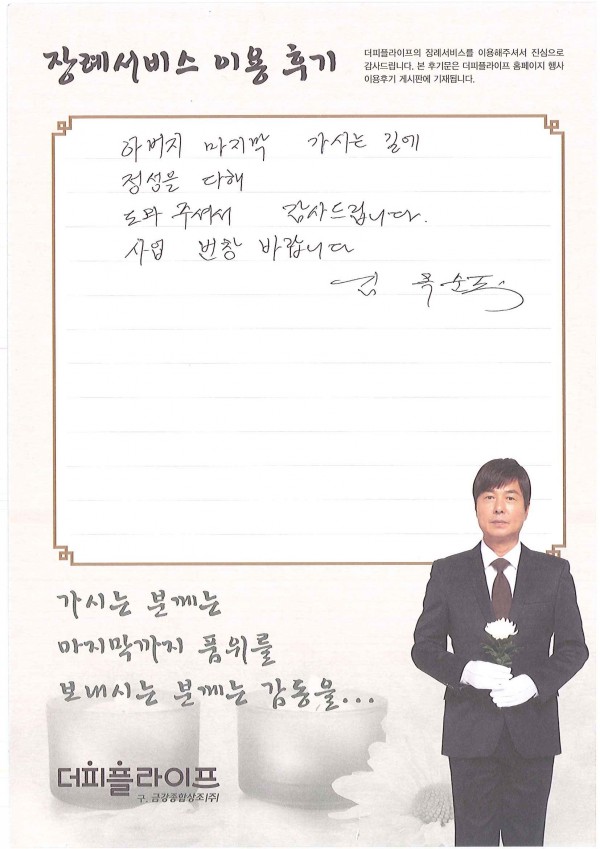 장례서비스 이용 후기
더피플라이프의 장례서비스를 이용해주셔서 진심으로
감사드립니다. 본 후기문은 더피플라이프 홈페이지 행사
이용후기 게시판에 기재됩니다.
아버지 마지막 가시는 길에
정성을 다해
도와 주셔서 감사드립니다.
사업 번창 바랍니다
가시는 분께는
마지막까지 품위를
보내시는 분께는 감동을...
더피플라이프
구. 금강종합상조(주)